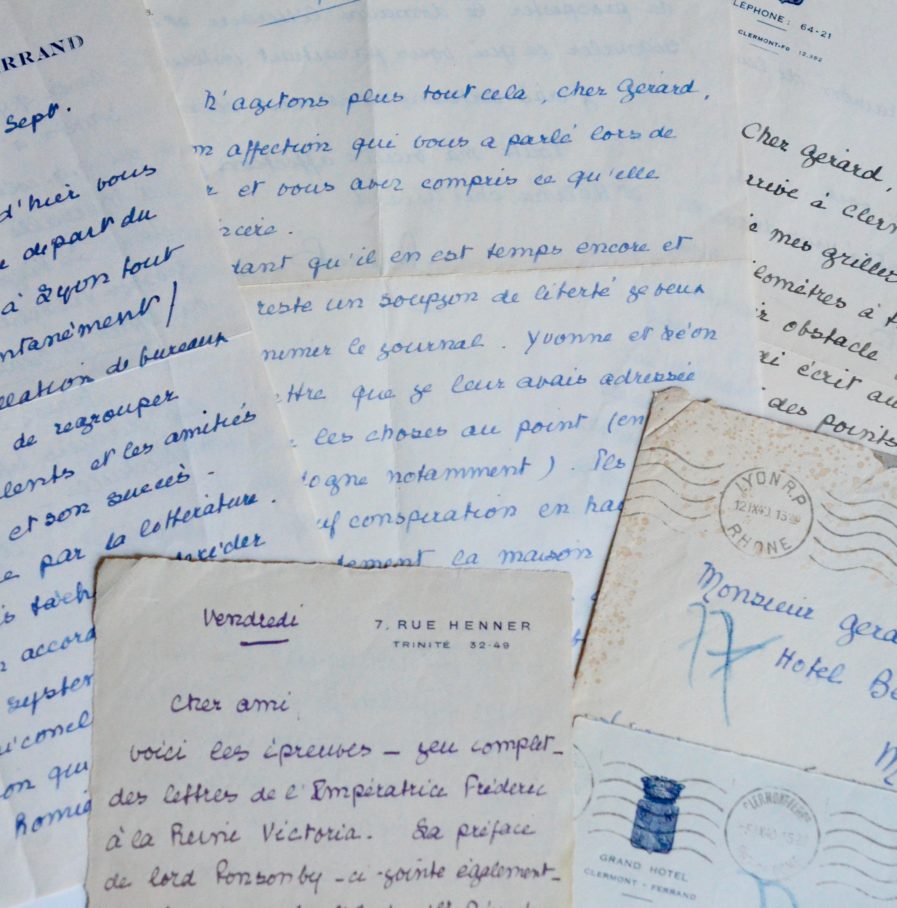 RRAND
Sept.
d'hier vous
depart du
à Lyon tout
ntanément)
llation de bureaux
de regrouper
lents et les amitiés
et son succès.
e par la littérature.
accord
system
on qui
n'agitons plus tout cela, cher Gérard,
on affection qui vous a parlé lors de
et vous avez compris ce qu'elle
ncère.
tant qu'il en est temps encore et
reste un soupçon de liberté je veux
nimer le journal. Yvonne et Léon
ettre que je leur avais adressée
les choses au point (en
logne notamment). Ils
conspiration en ha
dement la maison
LEPHONE: 64-21
CLERMONT-FD 12.392
Cher Gérard,
rrive à Clerm
mes grilles
ilomètres à
ir obstacle
ai écrit au
des points
Vendredi
7, RUE HENNER
TRINITÉ 32-49
Cher ami,
voici les épreuves _ jeu complet _
des lettres de l'Impératrice Fréderic
à la Reine Victoria. La préface
de lord Ponsonby _ ci-jointe également _
LYON R.P
RHONE
Monsieur Gera
17
Hotel Be
M
GRAND HOTEL
CLERMONT-FERRAND